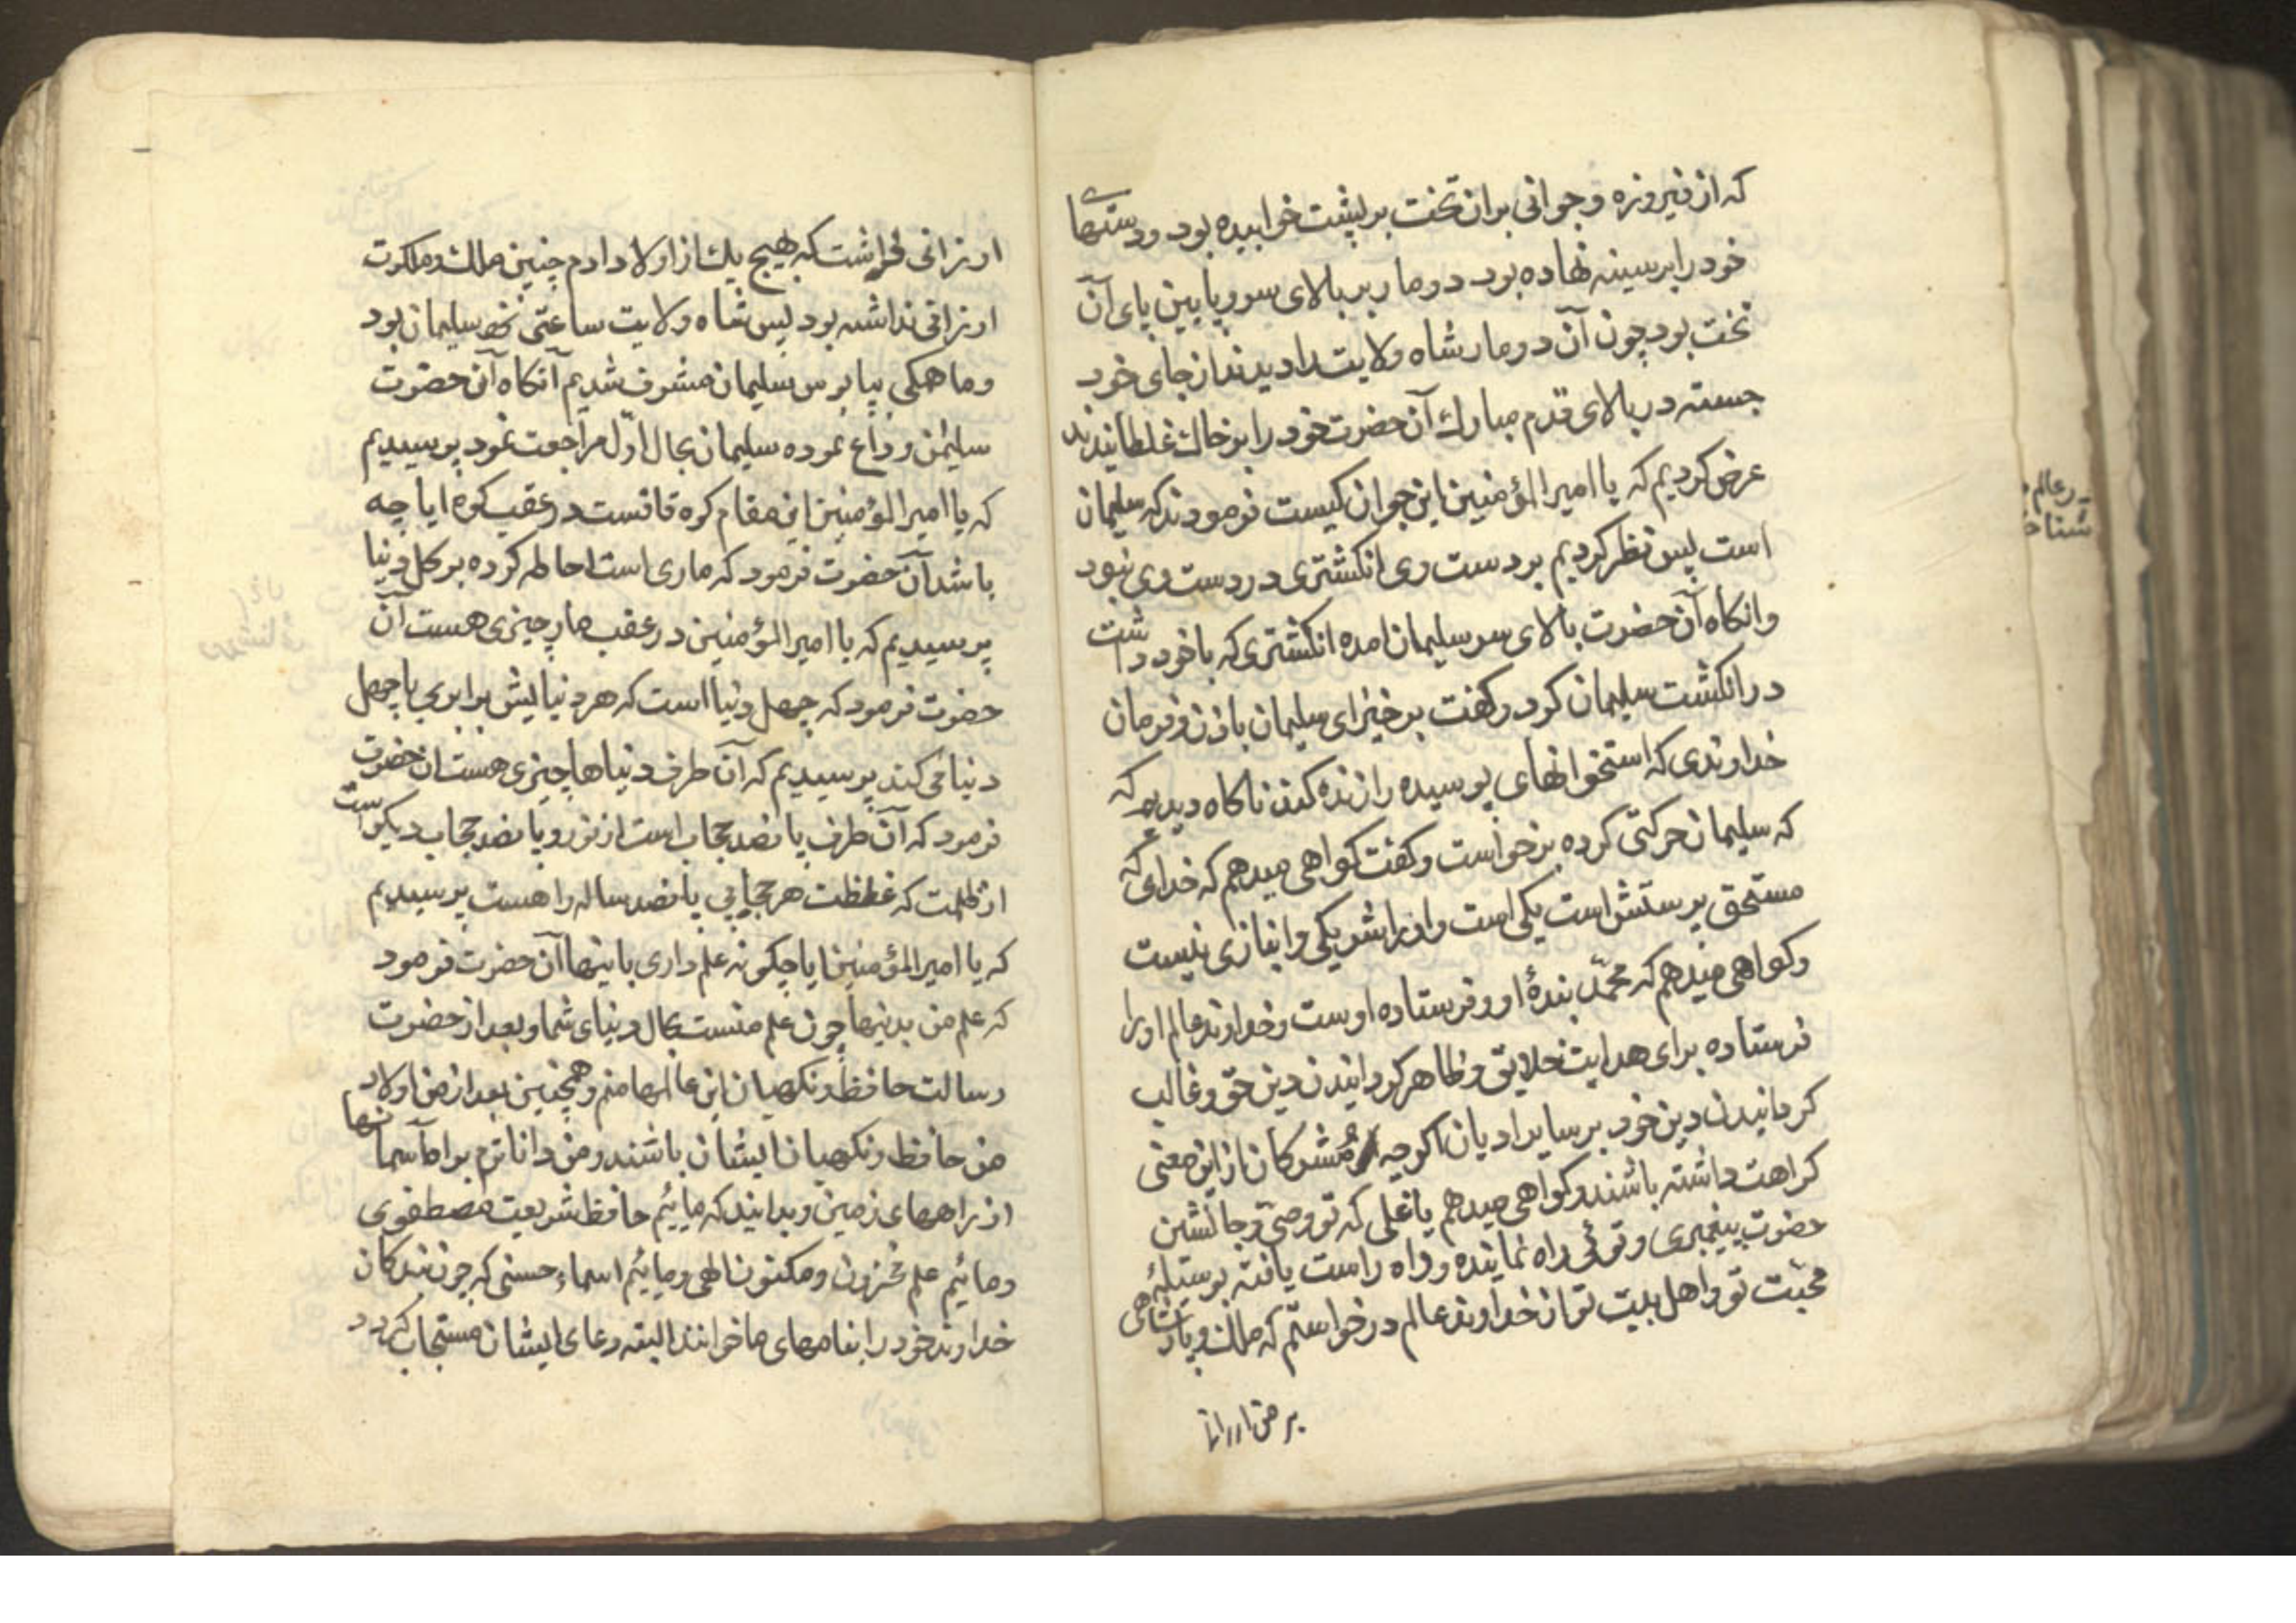 که از فیروزه و جوانی بران تخت بر پشت خوابیده بود و دستهای
خود را بر سینه نهاده بود دو مار بر بالای سر و پایین پای آن
تخت بود چون آن دو مار شاه ولایت را دیدند از جای خود
جسته در بالای قدم مبارك آن حضرت خود را بر خاك غلطانیدند
عرض کردیم که یا امیر المؤمنین این جوان کیست فرمودند که سلیمان
است پس نظر کردیم بر دست وی انکشتری در دست وی نبود
وانکاه آن حضرت بالای سر سلیمان امده انکشتری که با خود داشت
در انکشت سلیمان کرد و کفت بر خیز ای سلیمان باذن و فرمان
خداوندی که استخوانهای پوسیده را زنده کند ناکاه دیدیم که
که سلیمان حرکتی کرده برخواست و کفت کواهی میدهم که خدای که
مستحق پرستش است یکی است و او را شریکی و انبازی نیست
و کواهی میدهم که محمّد بندهٔ او و فرستاده اوست و خداوند عالم او را
فرستاده برای هدایت خلایق و ظاهر کردانیدن دین حق و غالب
کردانیدن دین خود بر سایر ادیان اکرچه مُشرکان از این معنی
کراهت داشته باشند و کواهی میدهم یا علی که تو وصیّ و جانشین
حضرت پیغمبری و توئی راه نماینده و راه راست یافته بوسیلهٔ
محبّت تو و اهل بیت تو از خداوند عالم درخواستم که ملك و پادشاهی
بر من ارزانی
ارزانی فرماشت که هیچ یك از اولاد ادم چنین ملك و ملکوت
ارزانی نداشته بود پس شاه ولایت ساعتی نزد سلیمان بود
و ما همکی بپابوس سلیمان مشرف شدیم آنکاه آن حضرت
سلیمن وداع نموده سلیمان بحال اوّل مراجعت نمود پرسیدیم
که یا امیر المؤمنین این مقام کوه قافست در عقب کوه ایا چه
باشد آن حضرت فرمود که ماری است احاطه کرده بر کل دنیا
پرسیدیم که یا امیر المؤمنین در عقب مار چیزی هست آن
حضرت فرمود که چهل دنیا است که هر دنیا لیش برابری با چهل
دنیا می کند پرسیدیم که آن طرف دنیاها چیزی هست ان حضرت
فرمود که آن طرف پانصد حجاب است از نور و پانصد حجاب دیکر است
از ظلمت که غلظت هر حجابی پانصد ساله راهست پرسیدیم
که یا امیر المؤمنین ایا چکونه علم داری باینها آن حضرت فرمود
که علم من بدنیها چون علم منست بحال دنیای شما و بعد از حضرت
رسالت حافظ و نکهبان این عالمها منم و همچنین بعد از من اولاد
من حافظ و نکهبان ایشان باشند و من داناترم براه آسمانها
از راههای زمین و بدانید که ماییم حافظ شریعت مصطفوی
و مائیم علم مخزون و مکنون الهی و مائیم اسماء حسنی که چون بندکان
خداوند خود را بنامهای ما خوانند البته دعای ایشان مستجاب کردد